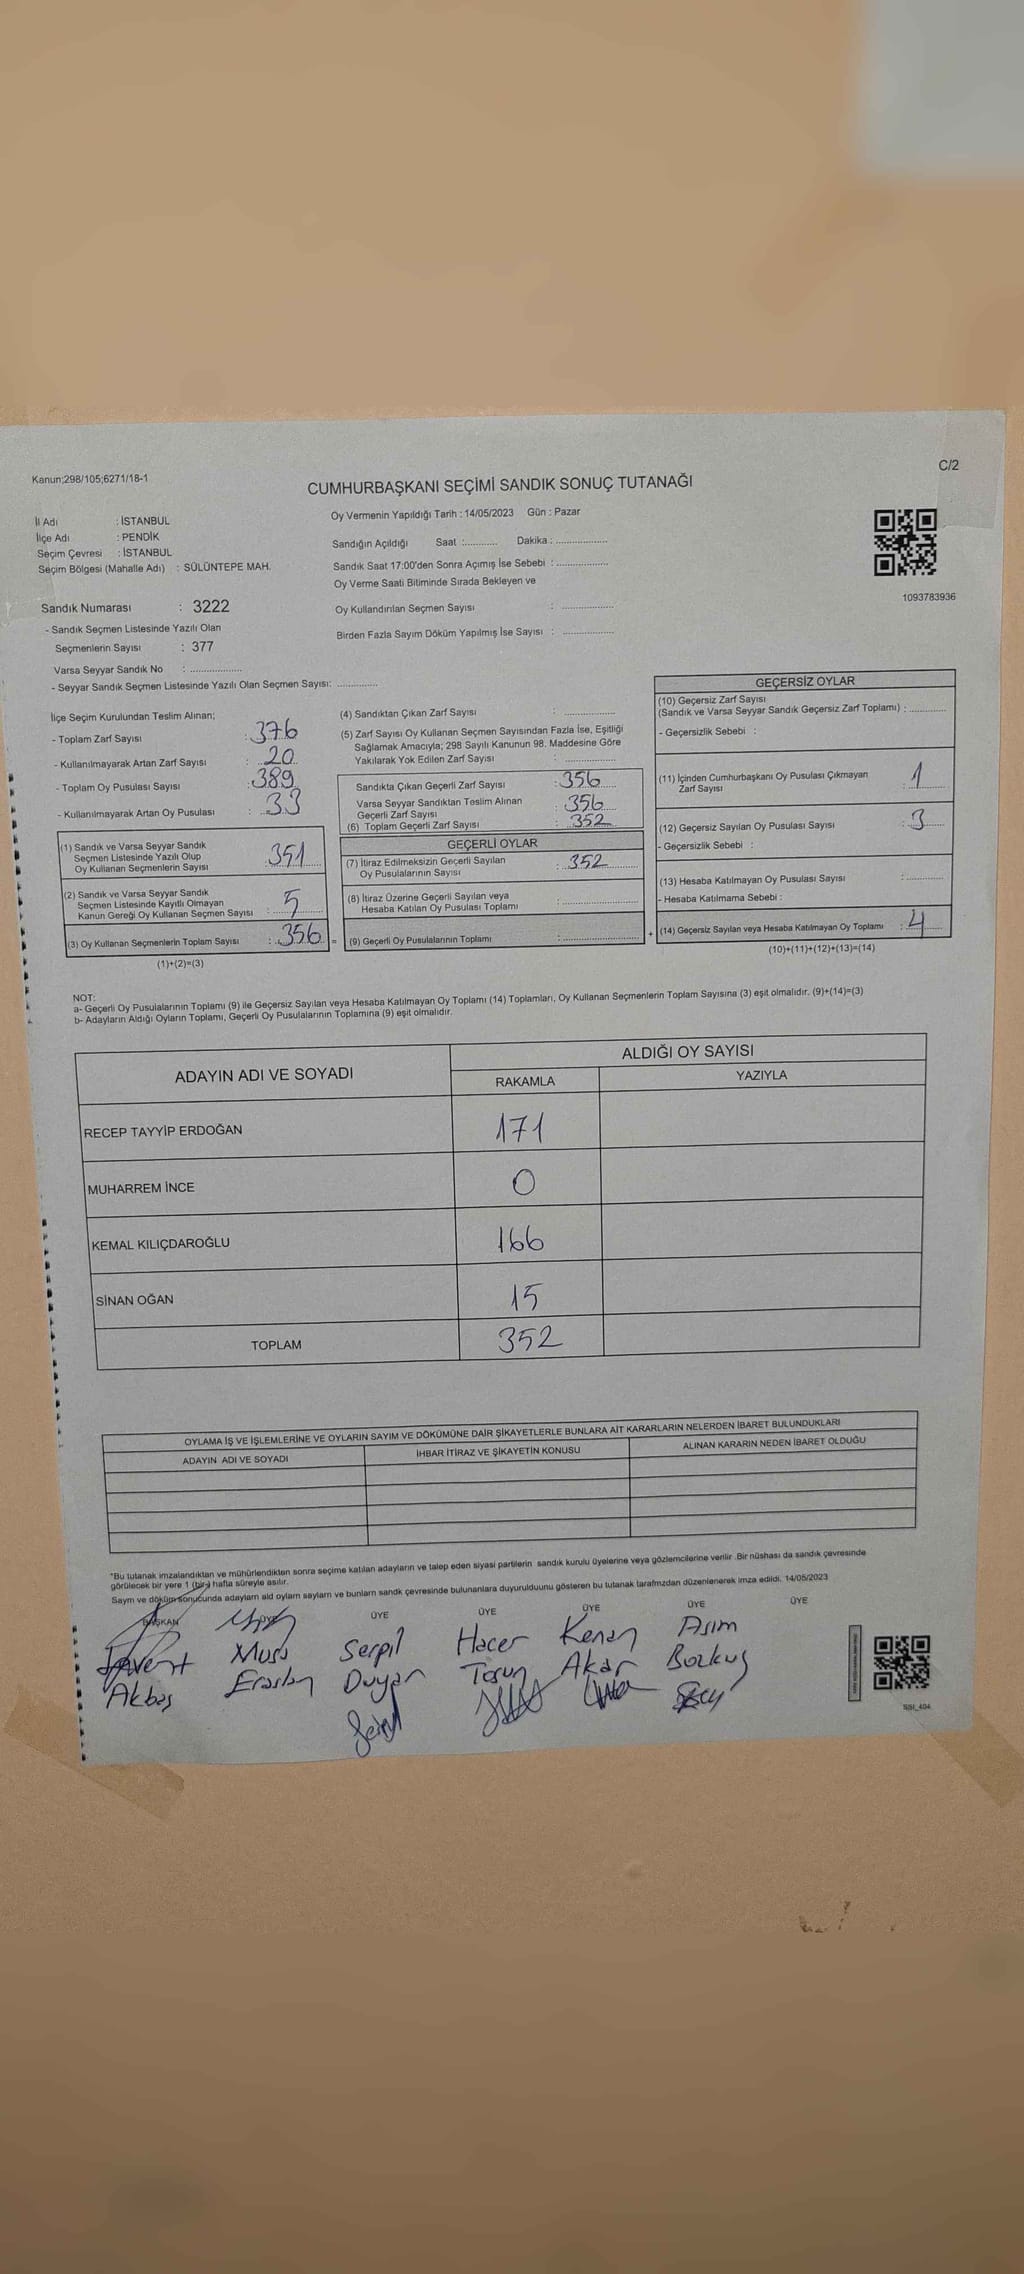 Kanun;298/105;6271/18-1
C/2
CUMHURBAŞKANI SEÇİMİ SANDIK SONUÇ TUTANAĞI
İl Adı : İSTANBUL
İlçe Adı : PENDİK
Seçim Çevresi : İSTANBUL
Seçim Bölgesi (Mahalle Adı) : SÜLÜNTEPE MAH.
Sandık Numarası : 3222
- Sandık Seçmen Listesinde Yazılı Olan
Seçmenlerin Sayısı : 377
Varsa Seyyar Sandık No : ...................
- Seyyar Sandık Seçmen Listesinde Yazılı Olan Seçmen Sayısı: ..............
Oy Vermenin Yapıldığı Tarih : 14/05/2023 Gün : Pazar
Sandığın Açıldığı Saat :............ Dakika : ..................
Sandık Saat 17:00'den Sonra Açımış İse Sebebi : ..................
Oy Verme Saati Bitiminde Sırada Bekleyen ve
Oy Kullandırılan Seçmen Sayısı : ..................
Birden Fazla Sayım Döküm Yapılmış İse Sayısı : ..................
1093783936
İlçe Seçim Kurulundan Teslim Alınan;
- Toplam Zarf Sayısı : 376
- Kullanılmayarak Artan Zarf Sayısı : 20
- Toplam Oy Pusulası Sayısı : 389
- Kullanılmayarak Artan Oy Pusulası : 33
(1) Sandık ve Varsa Seyyar Sandık
Seçmen Listesinde Yazılı Olup
Oy Kullanan Seçmenlerin Sayısı : 351
(2) Sandık ve Varsa Seyyar Sandık
Seçmen Listesinde Kayıtlı Olmayan
Kanun Gereği Oy Kullanan Seçmen Sayısı : 5
(3) Oy Kullanan Seçmenlerin Toplam Sayısı : 356
(1)+(2)=(3)
(4) Sandıktan Çıkan Zarf Sayısı : ..................
(5) Zarf Sayısı Oy Kullanan Seçmen Sayısından Fazla İse, Eşitliği
Sağlamak Amacıyla; 298 Sayılı Kanunun 98. Maddesine Göre
Yakılarak Yok Edilen Zarf Sayısı : ..................
Sandıkta Çıkan Geçerli Zarf Sayısı : 356
Varsa Seyyar Sandıktan Teslim Alınan
Geçerli Zarf Sayısı : 356
(6) Toplam Geçerli Zarf Sayısı : 352
GEÇERLİ OYLAR
(7) İtiraz Edilmeksizin Geçerli Sayılan
Oy Pusulalarının Sayısı : 352
(8) İtiraz Üzerine Geçerli Sayılan veya
Hesaba Katılan Oy Pusulası Toplamı : ..................
= (9) Geçerli Oy Pusulalarının Toplamı : ..................
GEÇERSİZ OYLAR
(10) Geçersiz Zarf Sayısı
(Sandık ve Varsa Seyyar Sandık Geçersiz Zarf Toplamı) : ............
- Geçersizlik Sebebi :
(11) İçinden Cumhurbaşkanı Oy Pusulası Çıkmayan
Zarf Sayısı : 1
(12) Geçersiz Sayılan Oy Pusulası Sayısı : 3
- Geçersizlik Sebebi :
(13) Hesaba Katılmayan Oy Pusulası Sayısı : ............
- Hesaba Katılmama Sebebi :
+ (14) Geçersiz Sayılan veya Hesaba Katılmayan Oy Toplamı : 4
(10)+(11)+(12)+(13)=(14)
NOT:
a- Geçerli Oy Pusulalarının Toplamı (9) ile Geçersiz Sayılan veya Hesaba Katılmayan Oy Toplamı (14) Toplamları, Oy Kullanan Seçmenlerin Toplam Sayısına (3) eşit olmalıdır. (9)+(14)=(3)
b- Adayların Aldığı Oyların Toplamı, Geçerli Oy Pusulalarının Toplamına (9) eşit olmalıdır.
ADAYIN ADI VE SOYADI ALDIĞI OY SAYISI
RAKAMLA YAZIYLA
RECEP TAYYİP ERDOĞAN 171
MUHARREM İNCE 0
KEMAL KILIÇDAROĞLU 166
SİNAN OĞAN 15
TOPLAM 352
OYLAMA İŞ VE İŞLEMLERİNE VE OYLARIN SAYIM VE DÖKÜMÜNE DAİR ŞİKAYETLERLE BUNLARA AİT KARARLARIN NELERDEN İBARET BULUNDUKLARI
ADAYIN ADI VE SOYADI İHBAR İTİRAZ VE ŞİKAYETİN KONUSU ALINAN KARARIN NEDEN İBARET OLDUĞU
"Bu tutanak imzalandıktan ve mühürlendikten sonra seçime katılan adayların ve talep eden siyasi partilerin sandık kurulu üyelerine veya gözlemcilerine verilir .Bir nüshası da sandık çevresinde
görülecek bir yere 1 (bir) hafta süreyle asılır.
Sayım ve döküm sonucunda adayların ald oyların sayların ve bunların sandk çevresinde bulunanlara duyurulduunu gösteren bu tutanak tarafmzdan düzenlenerek imza edildi. 14/05/2023
BAŞKAN ÜYE ÜYE ÜYE ÜYE ÜYE
Musa Serpil Hacer Kenan Asım
Akbaş Eraslan Duyar Tosun Akar Bozkuş
SSI_404